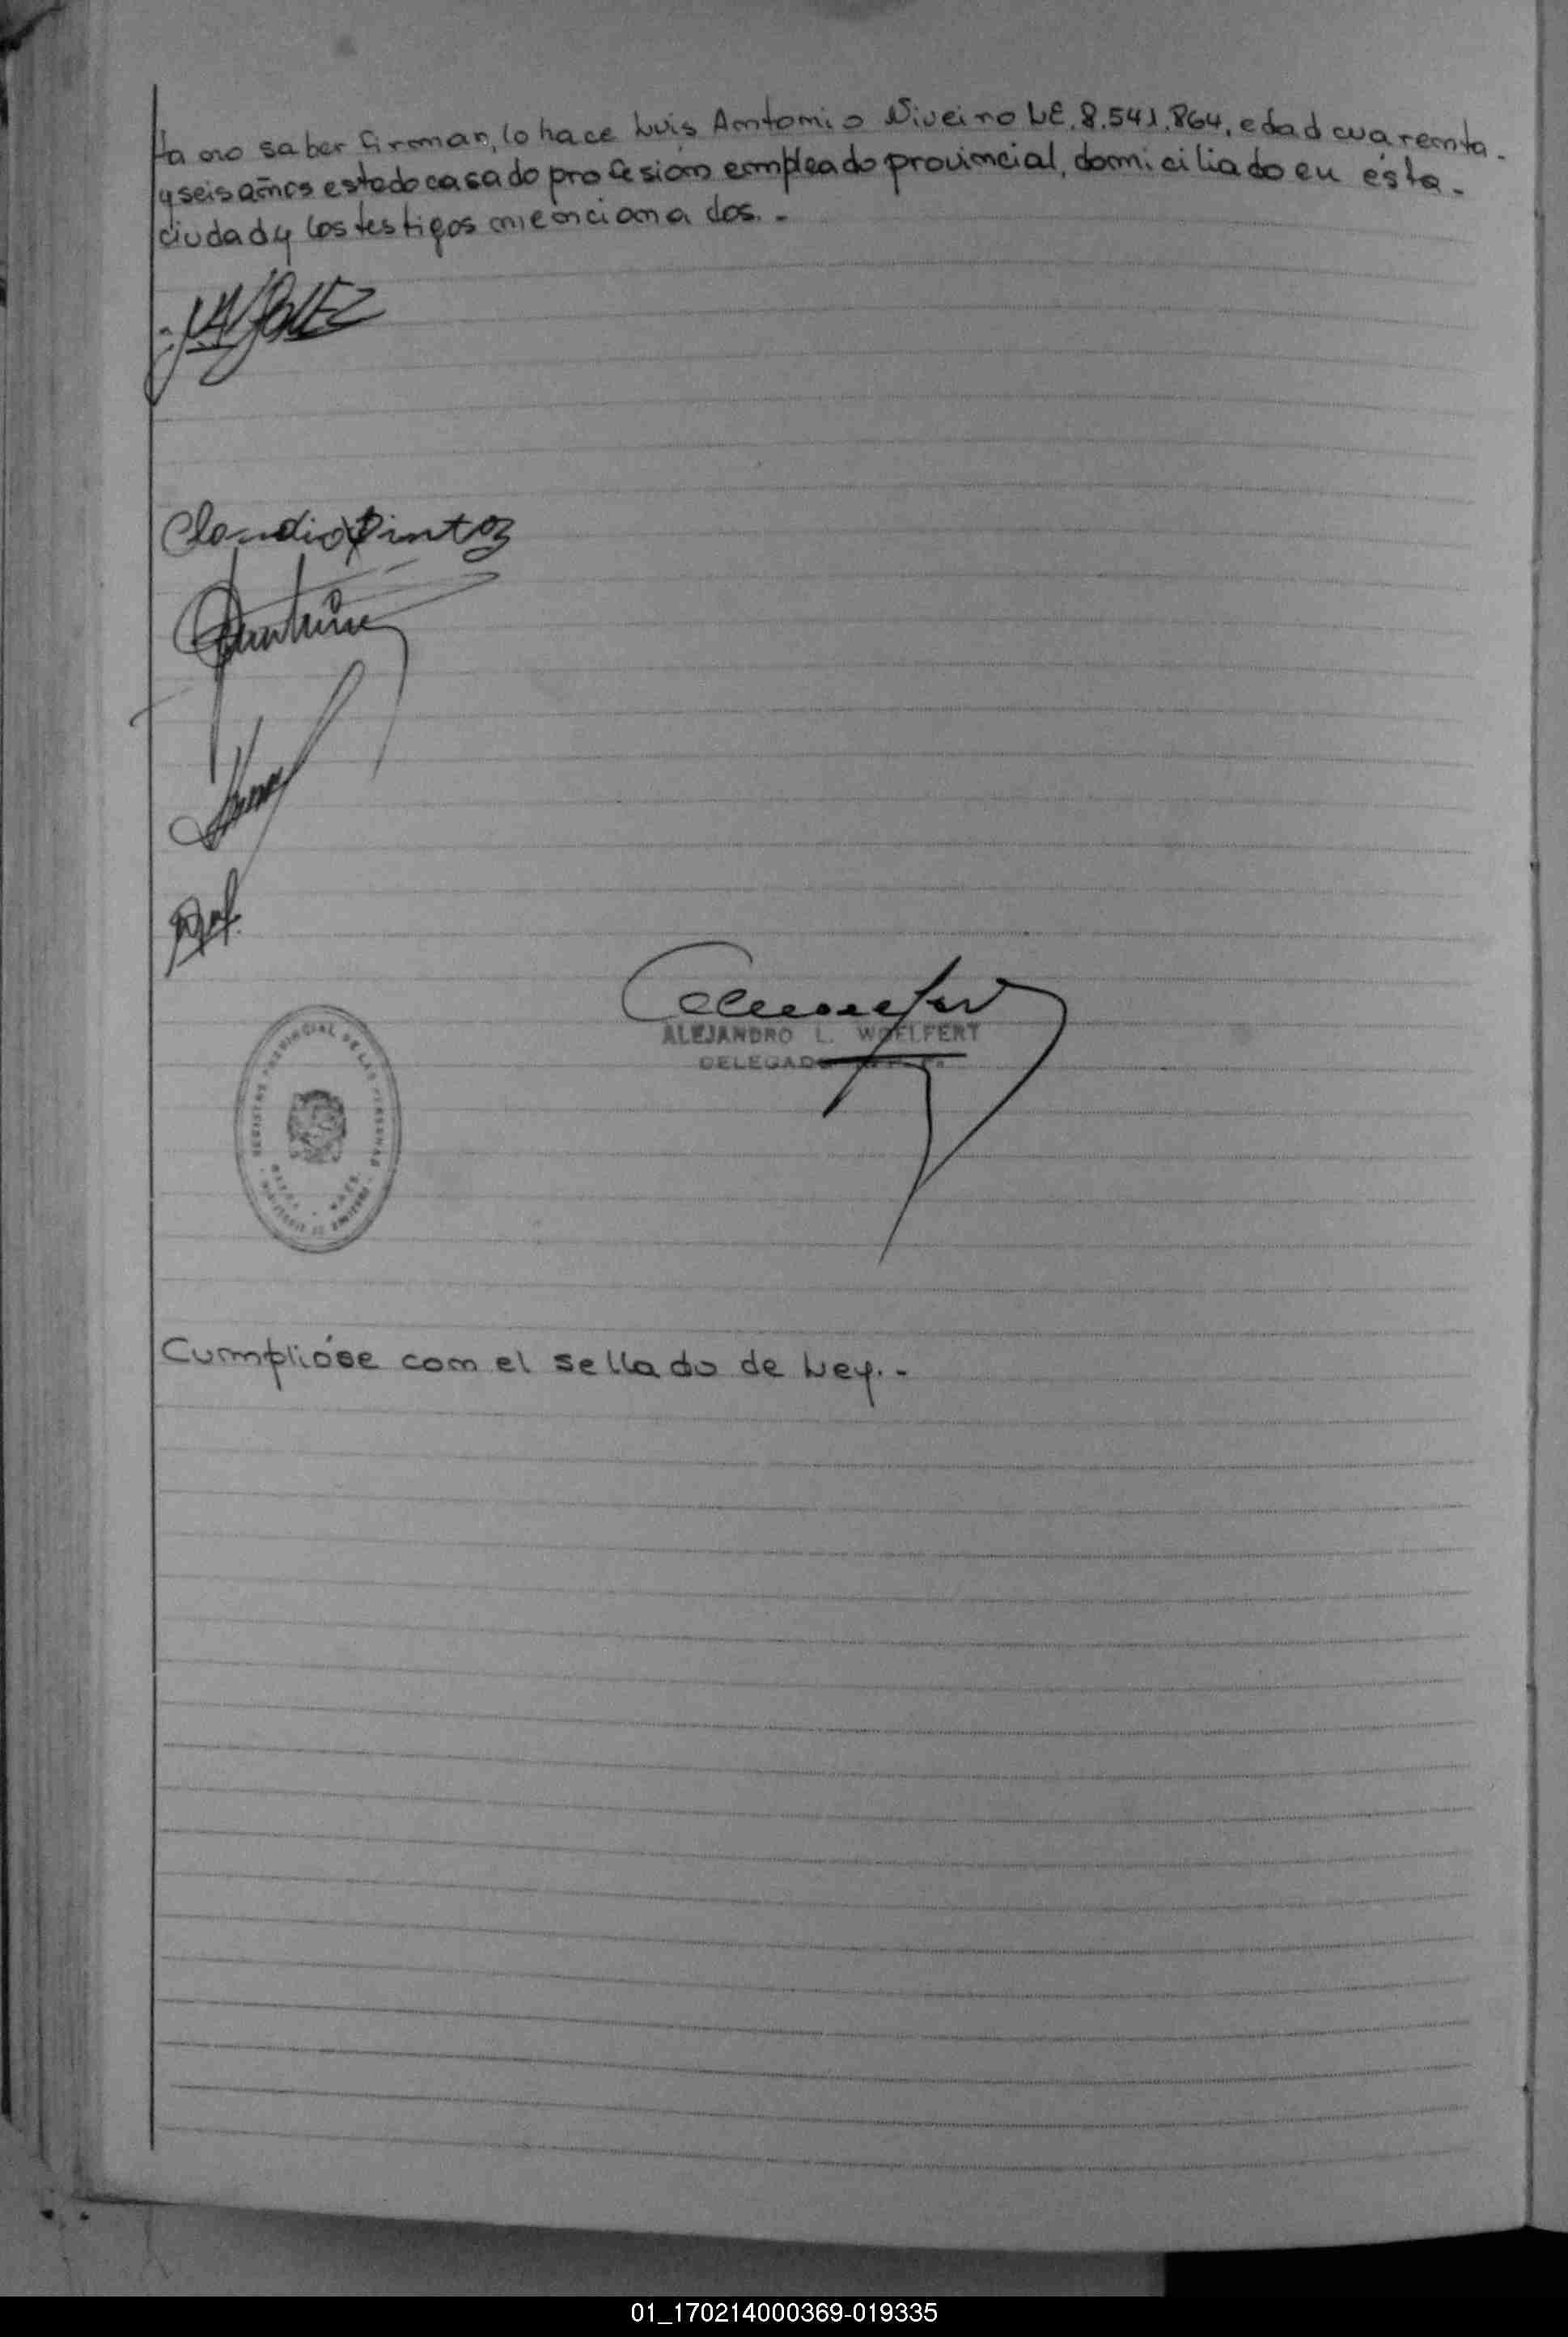 ta no saber firmar, lo hace Luis Antonio Niveiro LE. 8.541.864, edad cuarenta.-
y seis años estado casado profesión empleado provincial, domiciliado en ésta.-
ciudad y los testigos mencionados.-
Claudio Pintos
ALEJANDRO L. WOELFERT
DELEGADO
REGISTRO PROVINCIAL DE LAS PERSONAS
Cumplióse con el sellado de Ley.-
01_170214000369-019335